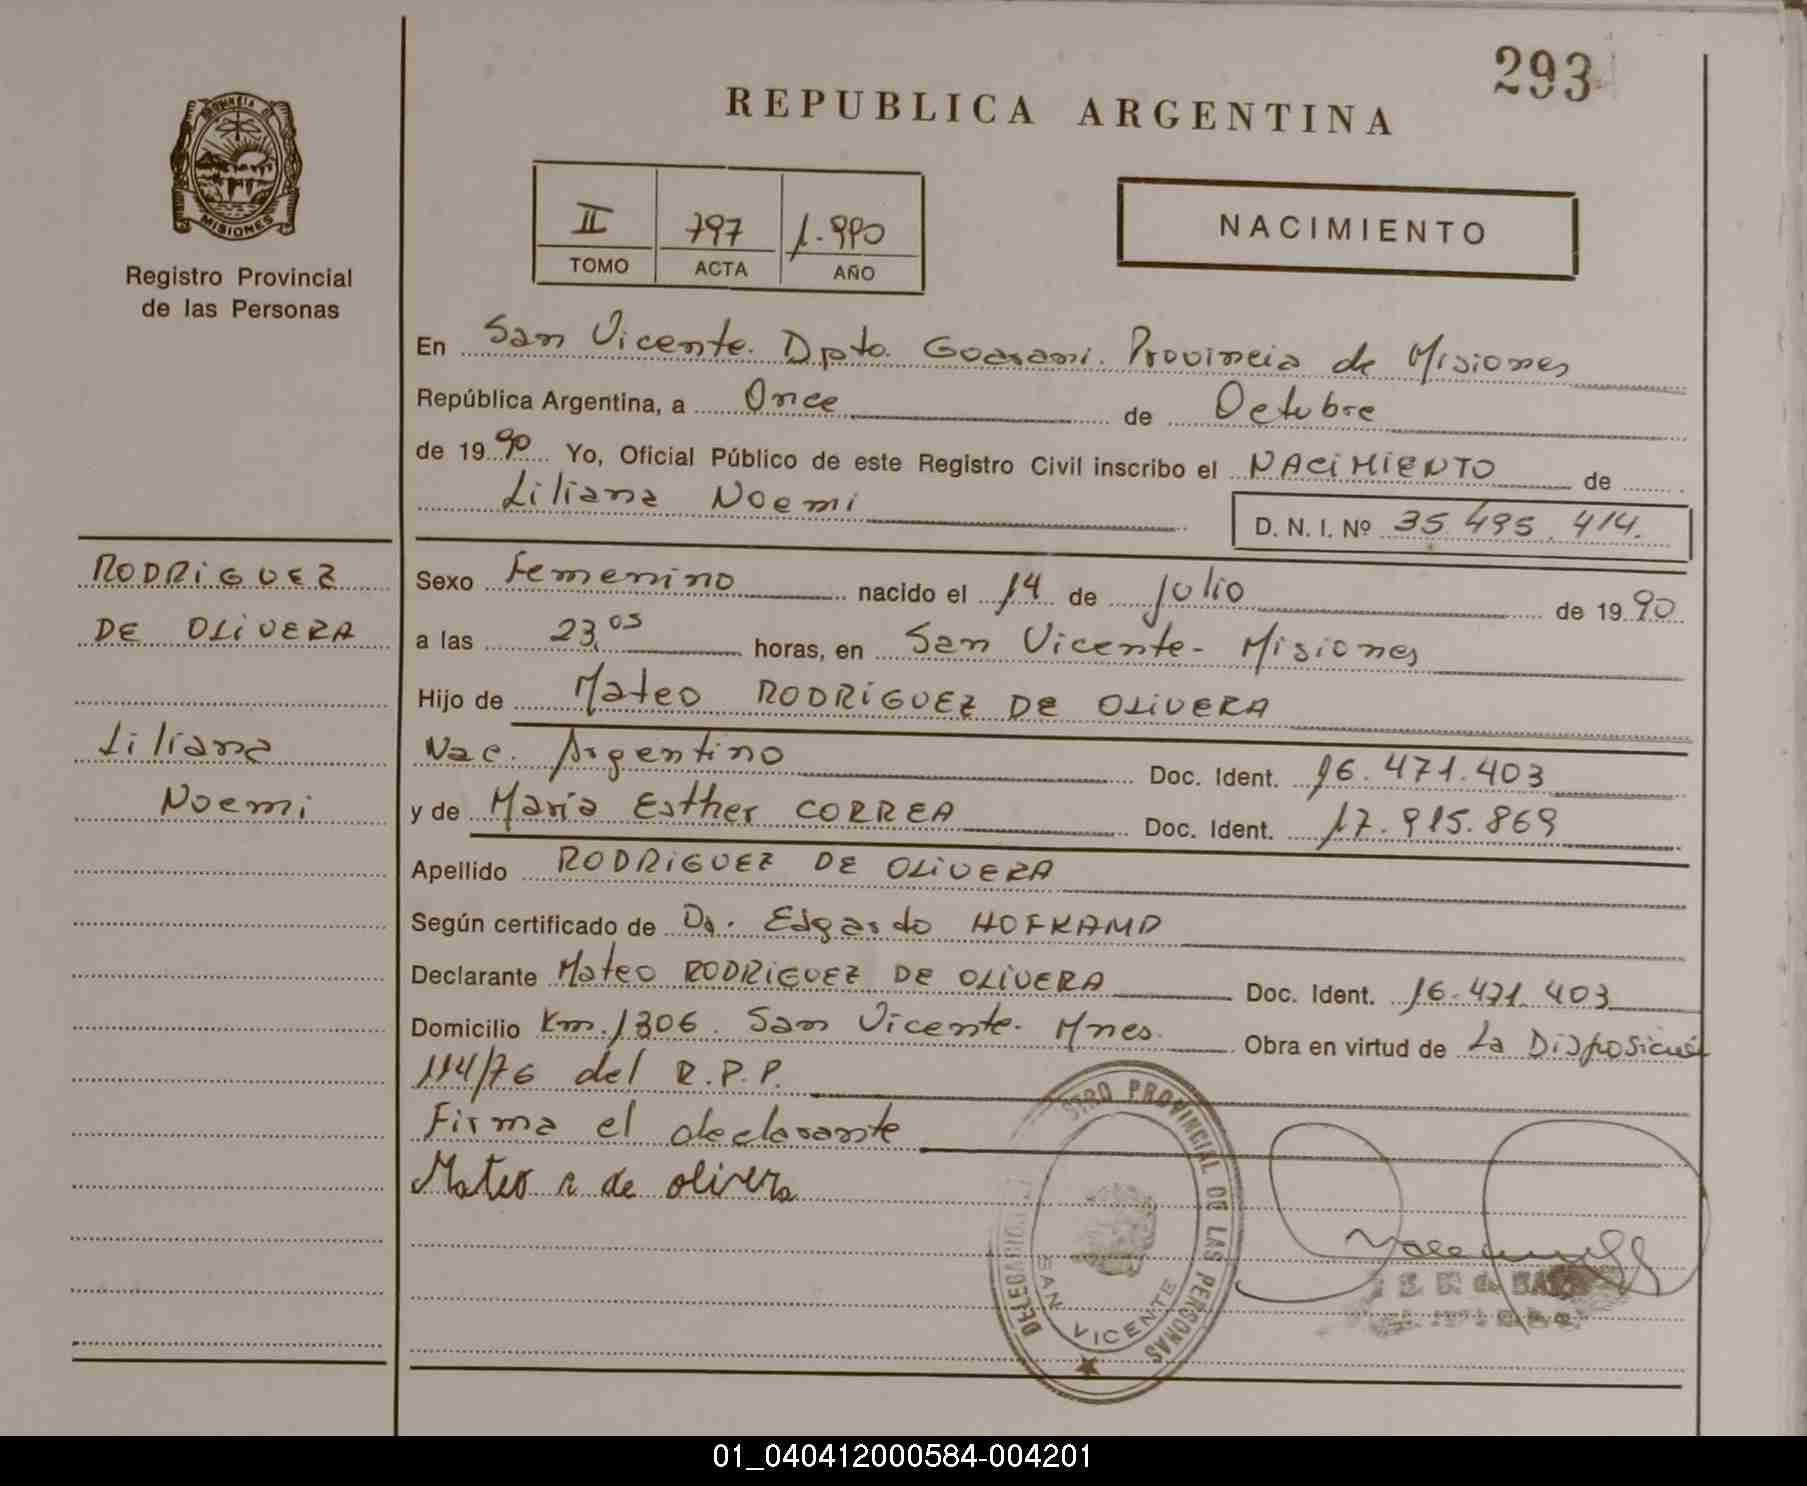 293
REPUBLICA ARGENTINA
PROVINCIA DE
MISIONES
Registro Provincial
de las Personas
II 797 1.990
TOMO ACTA AÑO
NACIMIENTO
En San Vicente. Dpto. Guarani. Provincia de Misiones
República Argentina, a Once de Octubre
de 1990 Yo, Oficial Público de este Registro Civil inscribo el NACIMIENTO de
Liliana Noemi
D. N. I. Nº 35.495.414.
RODRIGUEZ
DE OLIVERA
Liliana
Noemi
Sexo Femenino nacido el 14 de julio de 1990
a las 23,05 horas, en San Vicente - Misiones
Hijo de Mateo RODRIGUEZ DE OLIVERA
Nac. Argentino Doc. Ident. 16.471.403
y de María Esther CORREA Doc. Ident. 17.915.869
Apellido RODRIGUEZ DE OLIVERA
Según certificado de Dr. Edgardo HOFKAMP
Declarante Mateo RODRIGUEZ DE OLIVERA Doc. Ident. 16.471.403
Domicilio Km. 1306. San Vicente. Mnes. Obra en virtud de La Disposición
114/76 del R.P.P.
Firma el declarante
Mateo r de olivera
DELEGACION STRO PROVINCIAL DE LAS PERSONAS
SAN VICENTE
01_040412000584-004201